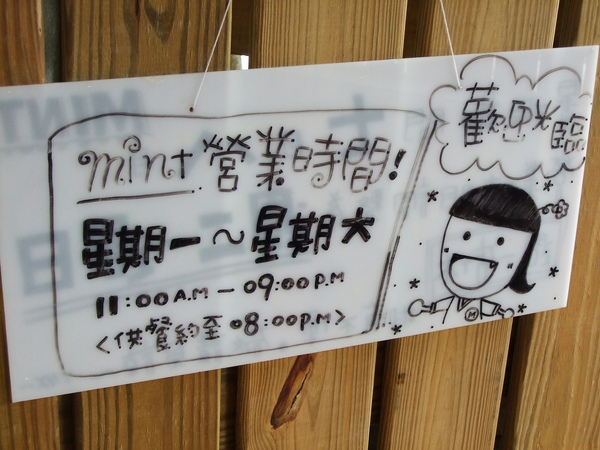 mint 營業時間!
星期一～星期六
11:00A.M－09:00P.M
<供餐約至08:00P.M>
歡迎光臨
M